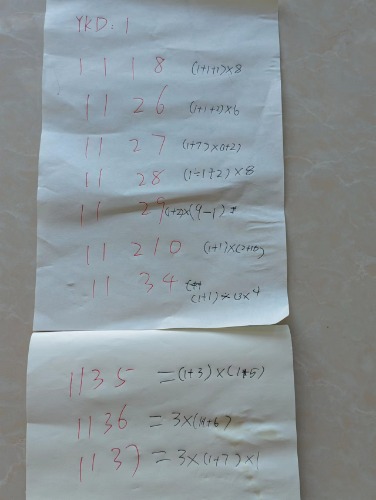 YKD: 1
1 1 1 8 (1+1+1)×8
11 2 6 (1+1+2)×6
11 2 7 (1+7)×(1+2)
11 28 (1÷1+2)×8
11 29 (1+2)×(9-1)
11 2 10 (1+1)×(2+10)
11 3 4 (1+1)÷13×4
11 3 5 =(1+3)×(1+5)
11 3 6 =3×(1+1+6)
11 3 7 =3×(1+7)×1